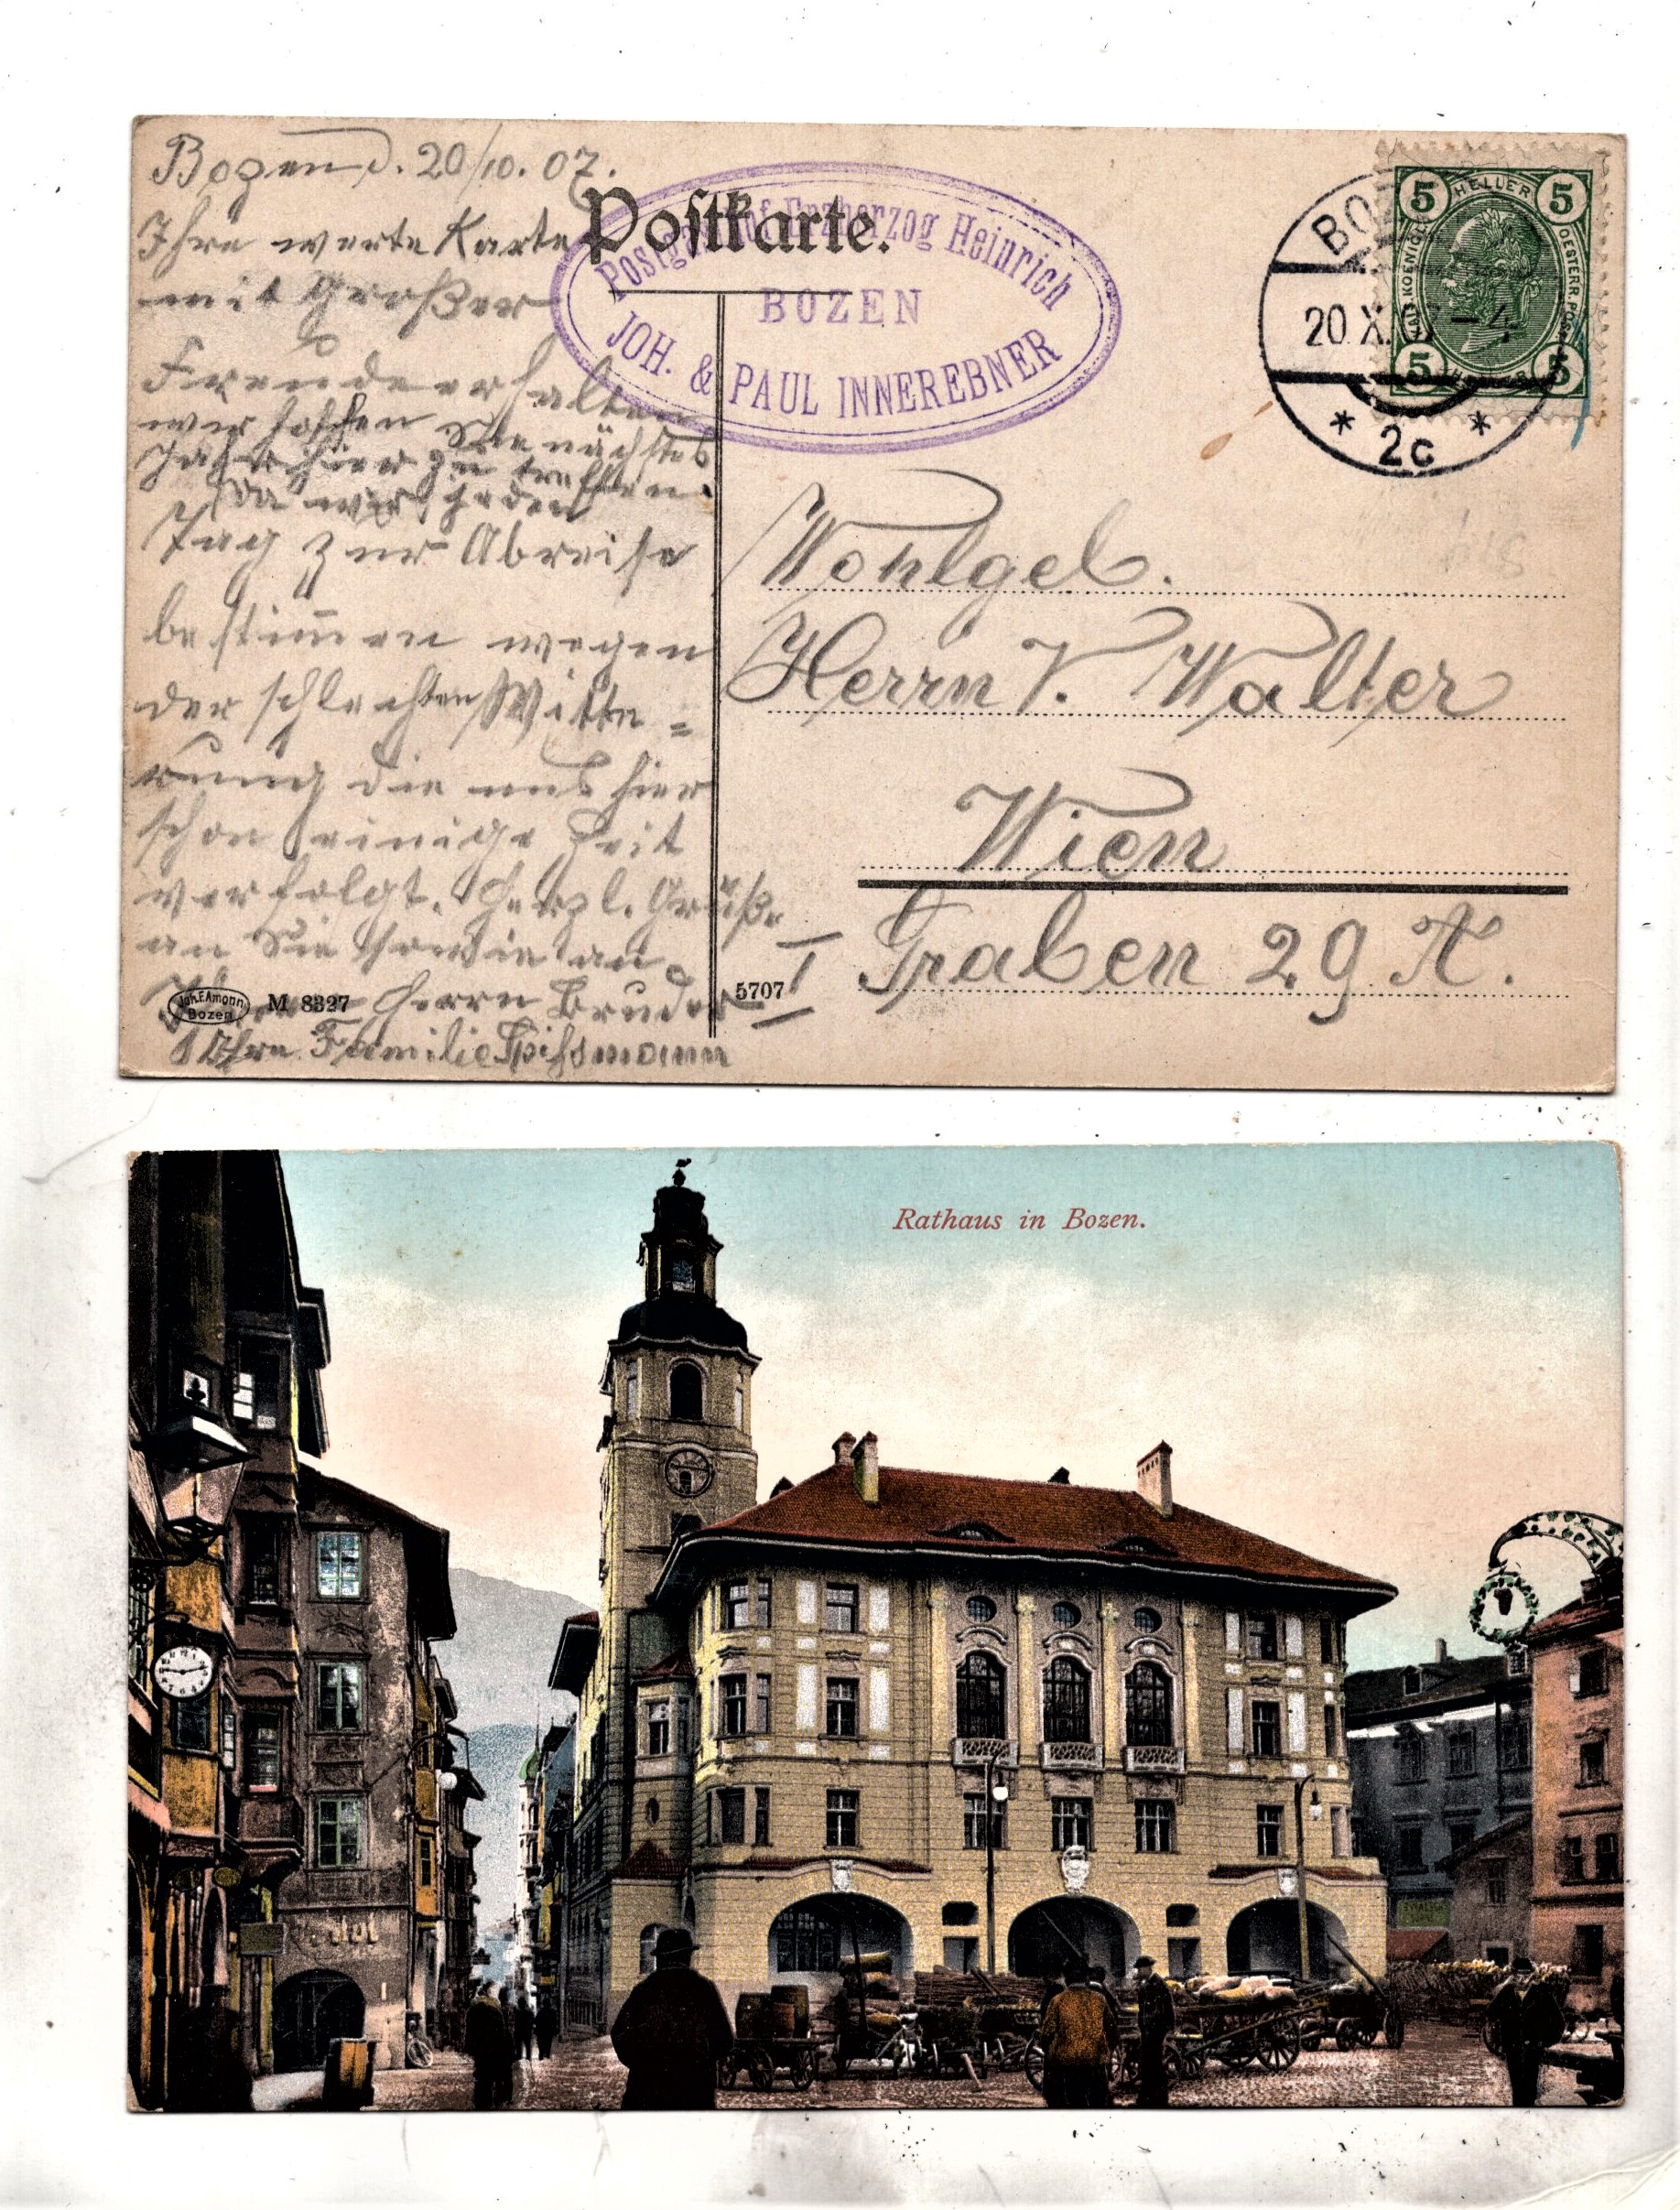 Bozen d. 20/10. 07.
Ihre werte Karte
mit Großer
Freude erhalten
wir hoffen Sie nächstes
Jahr hier zu treffen.
Da wir jeden
Tag zur Abreise
bestim̅en wegen
der schlechten Witte=
rung die uns hier
schon einige Zeit
verfolgt. Herzl. Grüße
an Sie sowie an
Herrn Bruder
Ihre Familie
Postkarte.
Postgasthof Erzherzog Heinrich
BOZEN
JOH. & PAUL INNEREBNER
5 HELLER 5
OESTERR. POST
5 5
20 X 4
* 2c *
Wohlgeb.
Herrn V. Walter
Wien
I Graben 29 A.
Joh. F. Amonn
Bozen
M 8327
5707
Rathaus in Bozen.